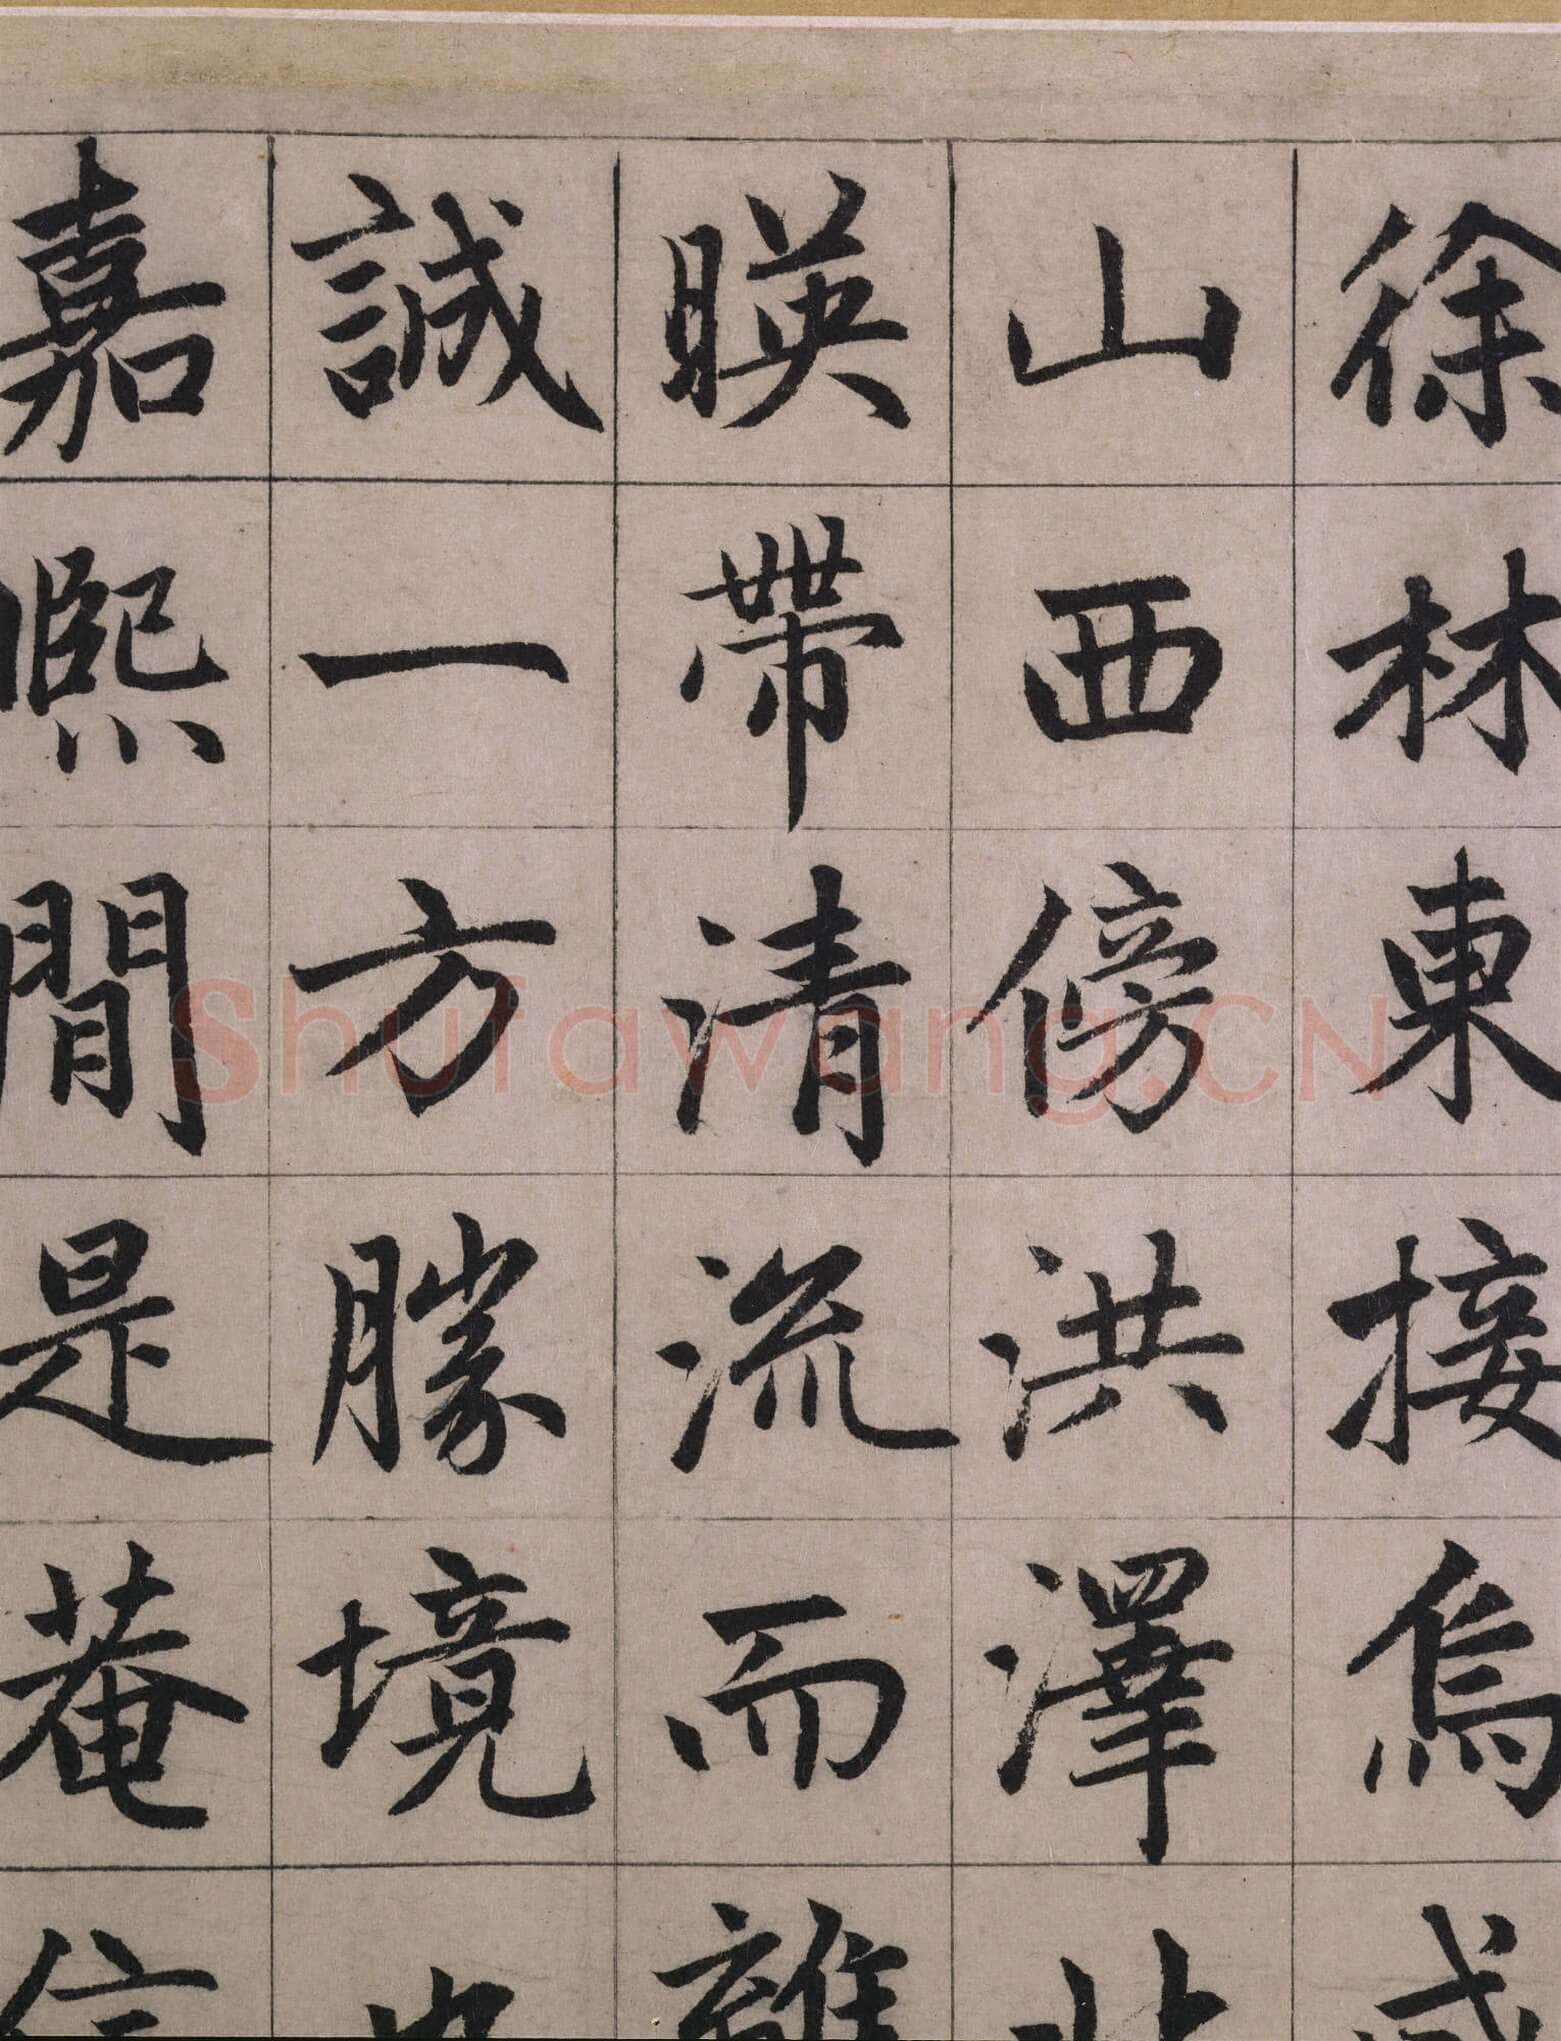 徐林東接烏戍
山西傍洪澤北
暎帶清流而離
誠一方勝境也
嘉熙間是菴信
Shufawang.CN